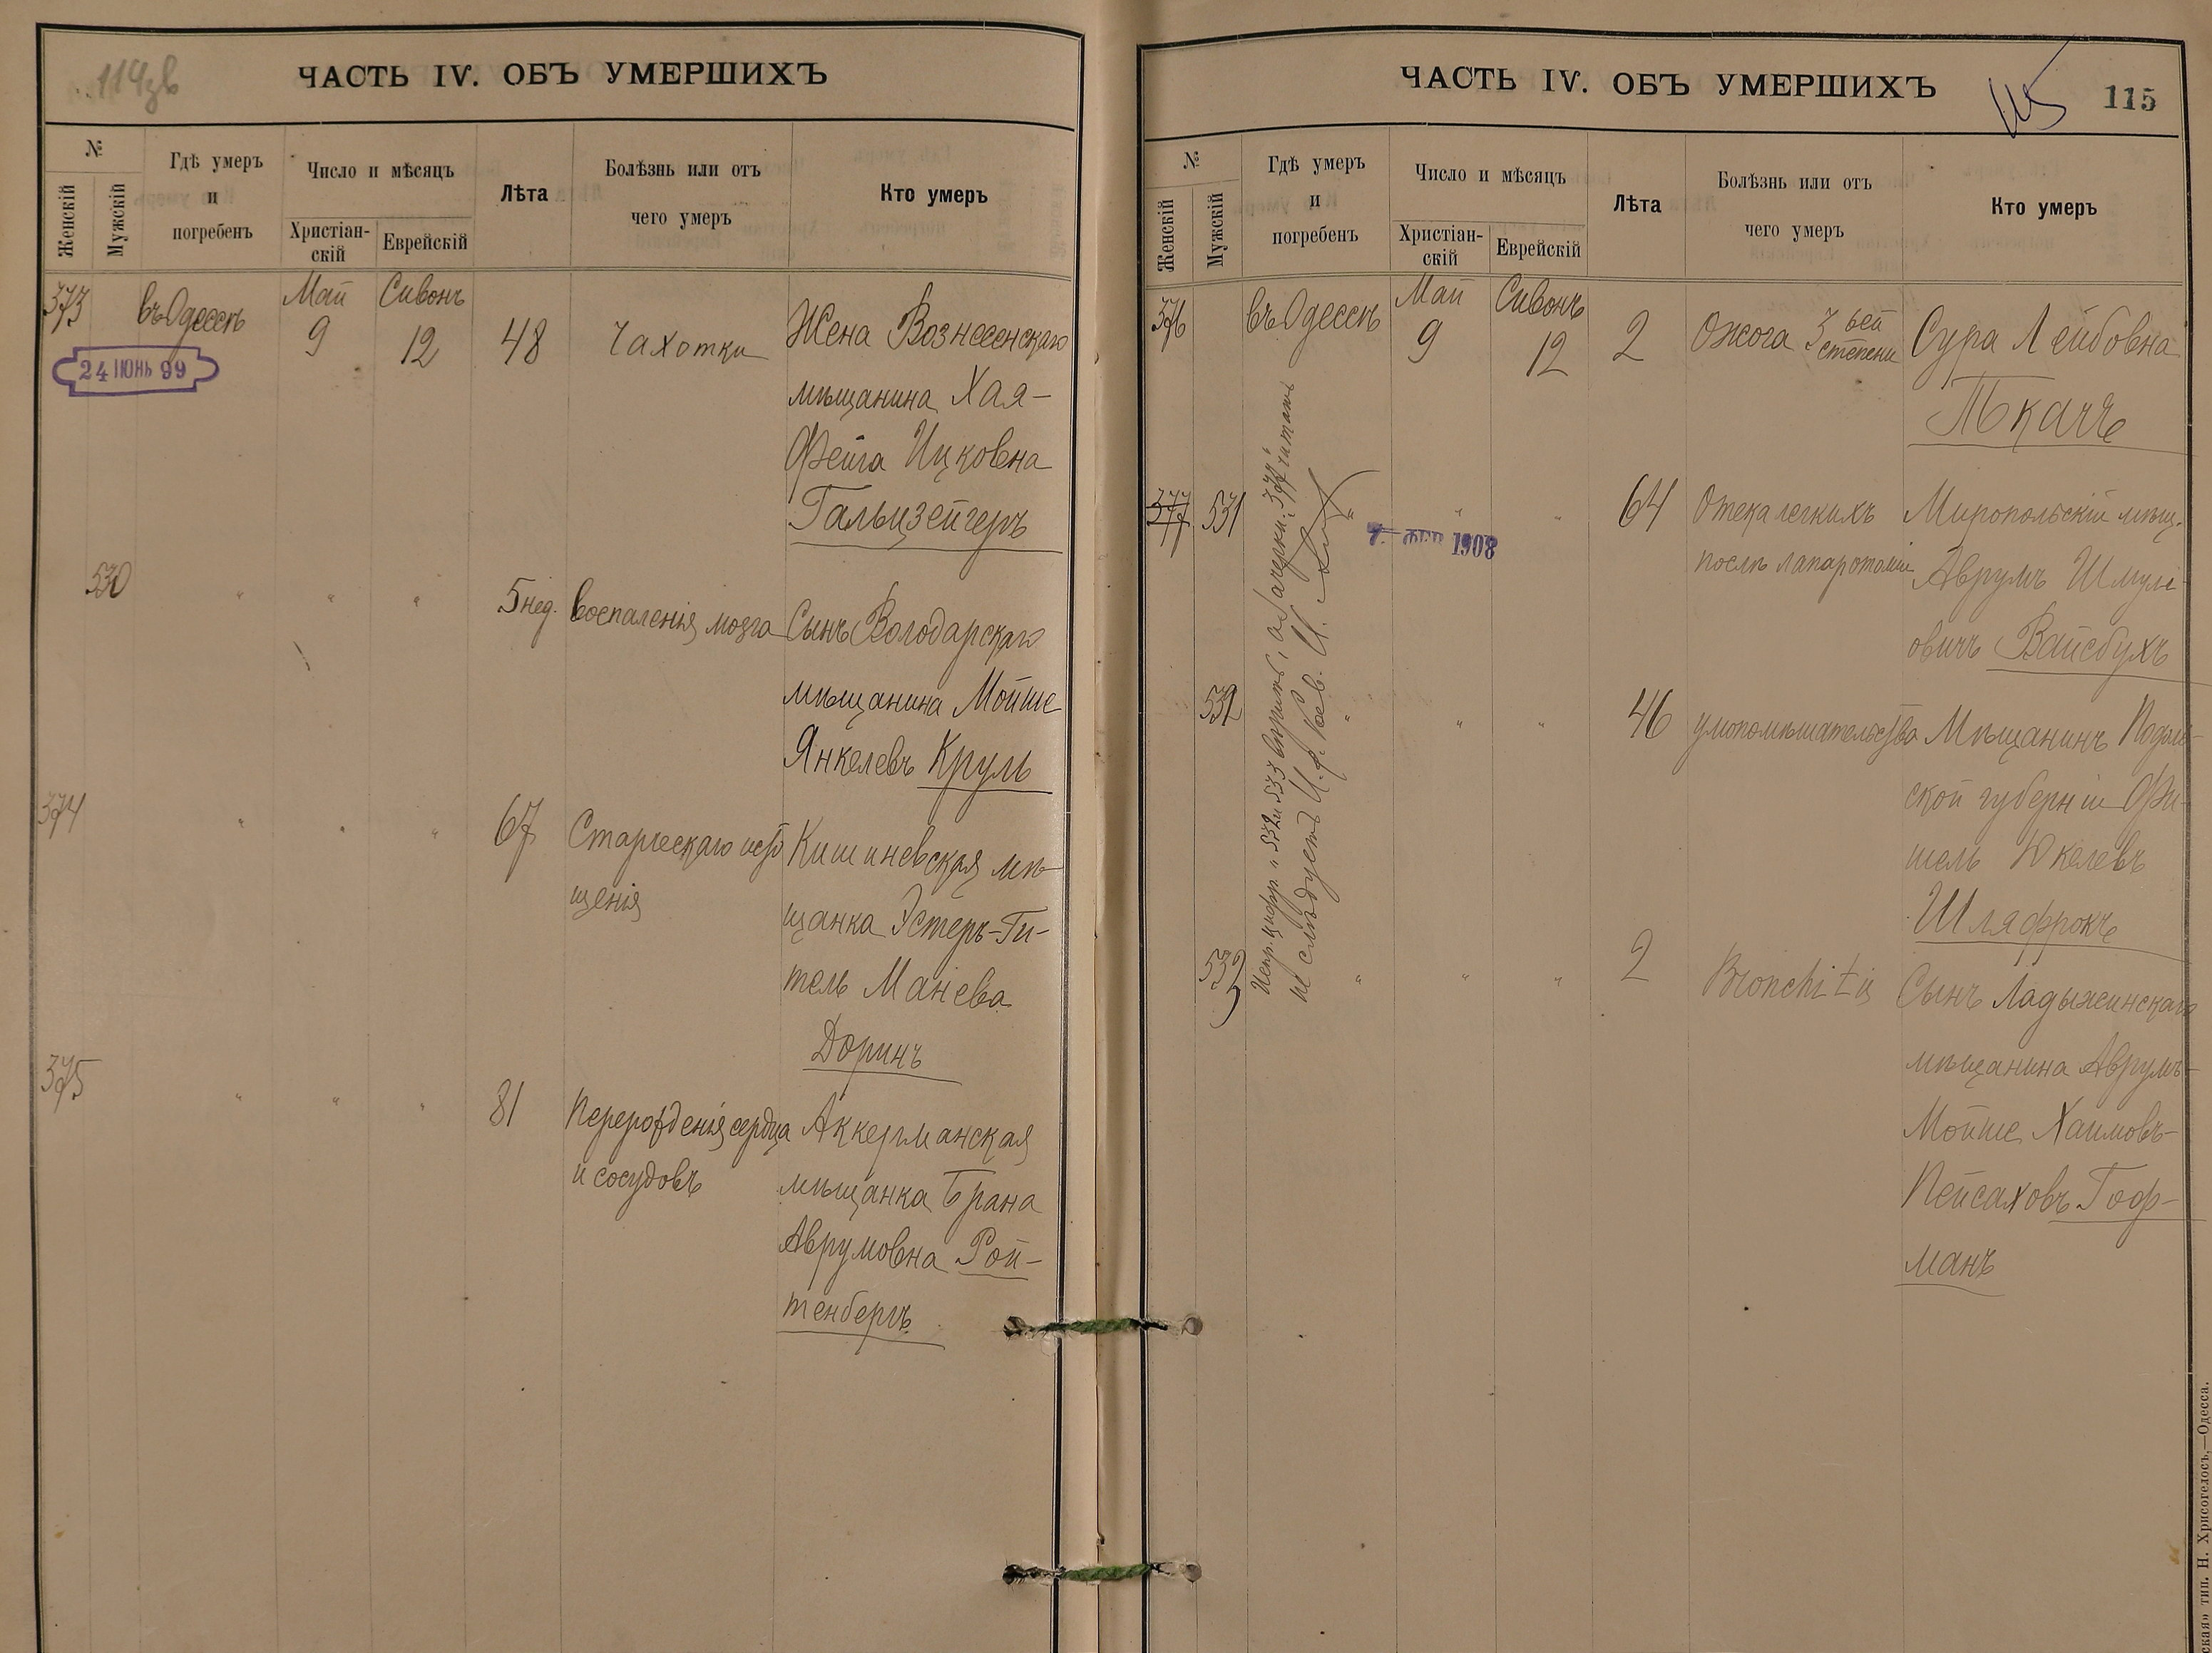 114 зв
ЧАСТЬ IV. ОБЪ УМЕРШИХЪ
№
Женскій
Мужскій
Гдѣ умеръ
и
погребенъ
Число и мѣсяцъ
Христіан-
скій
Еврейскій
Лѣта
Болѣзнь или отъ
чего умеръ
Кто умеръ
373 въ Одессѣ Май 9 Сивонъ 12 48 Чахотки Жена Вознесенскаго
мѣщанина Хая-
Фейга Ицковна
Гальцзейгеръ
24 ІЮНЬ 99
530 " " " 5 нед. Воспаленія мозга Сынъ Володарскаго
мѣщанина Мойше
Янкелевъ Круль
374 " " " 67 Старческаго исто Кишиневская мѣ-
щенія щанка Эстеръ-Ги-
тель Маніева
Доринъ
375 " " " 81 Перерожденія сердца Аккерманская
и сосудовъ мѣщанка Брана
Аврумовна Рой-
тенбергъ
ЧАСТЬ IV. ОБЪ УМЕРШИХЪ
115
115
№
Женскій
Мужскій
Гдѣ умеръ
и
погребенъ
Число и мѣсяцъ
Христіан-
скій
Еврейскій
Лѣта
Болѣзнь или отъ
чего умеръ
Кто умеръ
376 въ Одессѣ Май 9 Сивонъ 12 2 Ожога 3 ьей Сура Лейбовна
степени Ткачъ
377 531 " " " 64 Отека легкихъ Миропольскій мѣщ.
послѣ лапаротоміи Аврумъ Шмуле-
овичъ Вайсбухъ
7. ФЕВ 1908
532 " " " 46 умопомѣшательства Мѣщанинъ Подоль-
ской губерніи Фи-
шель Юкелевъ
Шлафрокъ
533 " " " 2 Bronchitis Сынъ Ладыжинскаго
мѣщанина Аврумъ-
Мойше Хаимовъ-
Пейсаховъ Гоф-
манъ
Испр. цифр. "532 и 533 вѣрить, а зачеркн. "377" читать
не слѣдуетъ И. д.
тип. Н. Хрисогелосъ,—Одесса.